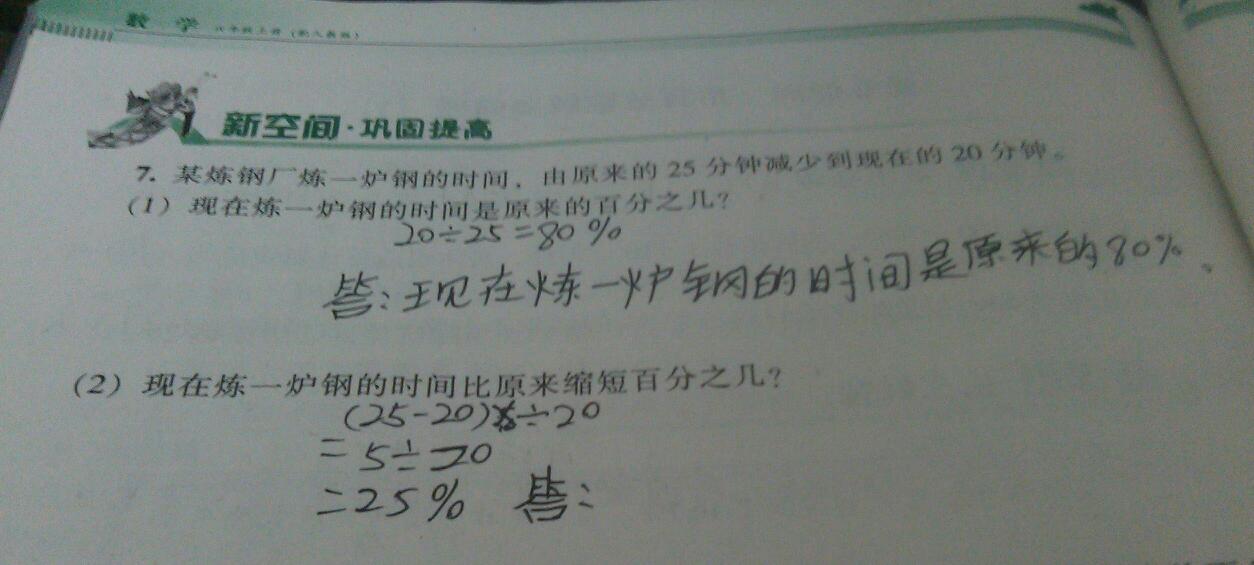 数 学 六年级上册（配人教版）
新空间·巩固提高
7. 某炼钢厂炼一炉钢的时间，由原来的 25 分钟减少到现在的 20 分钟。
(1) 现在炼一炉钢的时间是原来的百分之几？
20÷25=80%
答:现在炼一炉钢的时间是原来的80%。
(2) 现在炼一炉钢的时间比原来缩短百分之几？
(25-20)÷20
=5÷20
=25% 答: